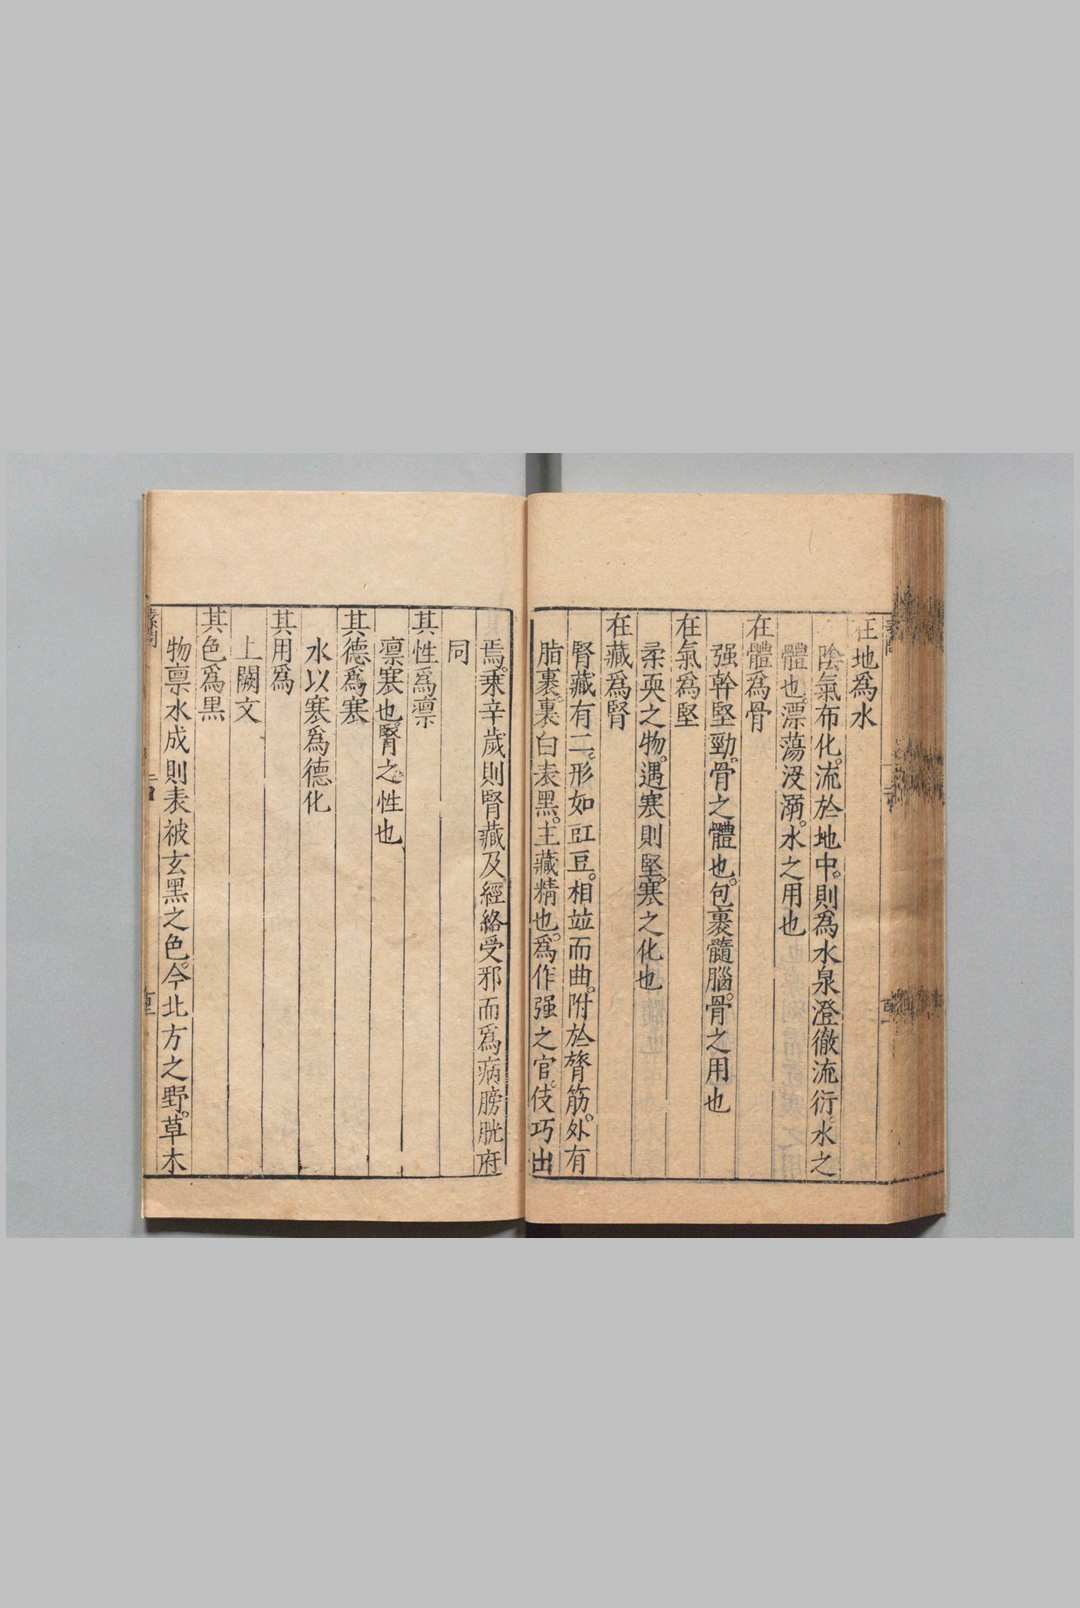 在地為水
陰氣布化。流於地中。則為水泉澄徹流衍。水之
體也。漂蕩沒溺。水之用也
在體為骨
强幹堅勁。骨之體也。包裹髓腦。骨之用也
在氣為堅
柔耎之物。遇寒則堅。寒之化也
在藏為腎
腎藏有二。形如豇豆。相並而曲。附於膂筋。外有
脂裹。裏白表黑。主藏精也。爲作强之官。伎巧出
焉。乘辛歲則腎藏及經絡受邪而爲病膀胱府
同
其性爲凛
凛寒也。腎之性也
其德爲寒
水以寒爲德化
其用爲
上闕文
其色爲黒
物禀水成則表被玄黑之色。今北方之野。草木
素問